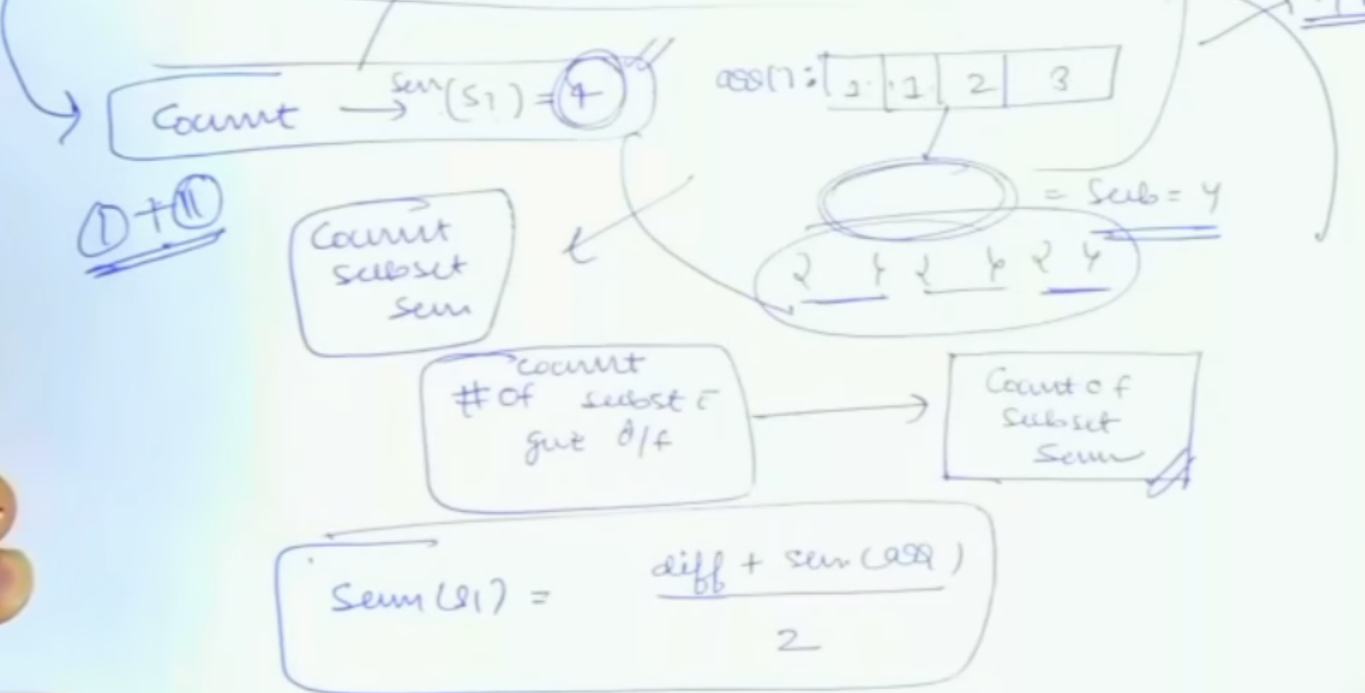 Count → Sum (S1) = 4
arr[]: 1 1 2 3
= Sub = 4
I + II
Count
subset
Sum
Count
# of subset
diff
Count of
Subset
Sum
Sum (S1) = diff + sum (arr)
2